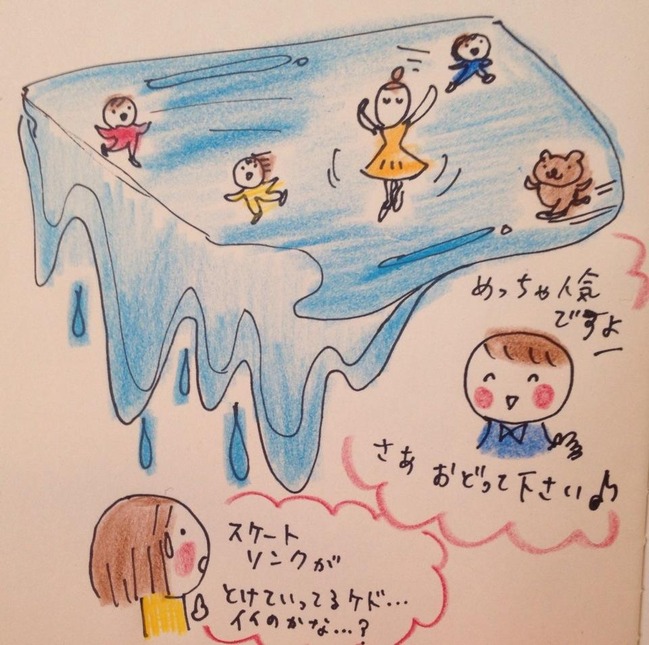 めっちゃ人気
ですよー
さあ おどって下さい♪
スケート
リンクが
とけていってるケド…
イイのかな…?